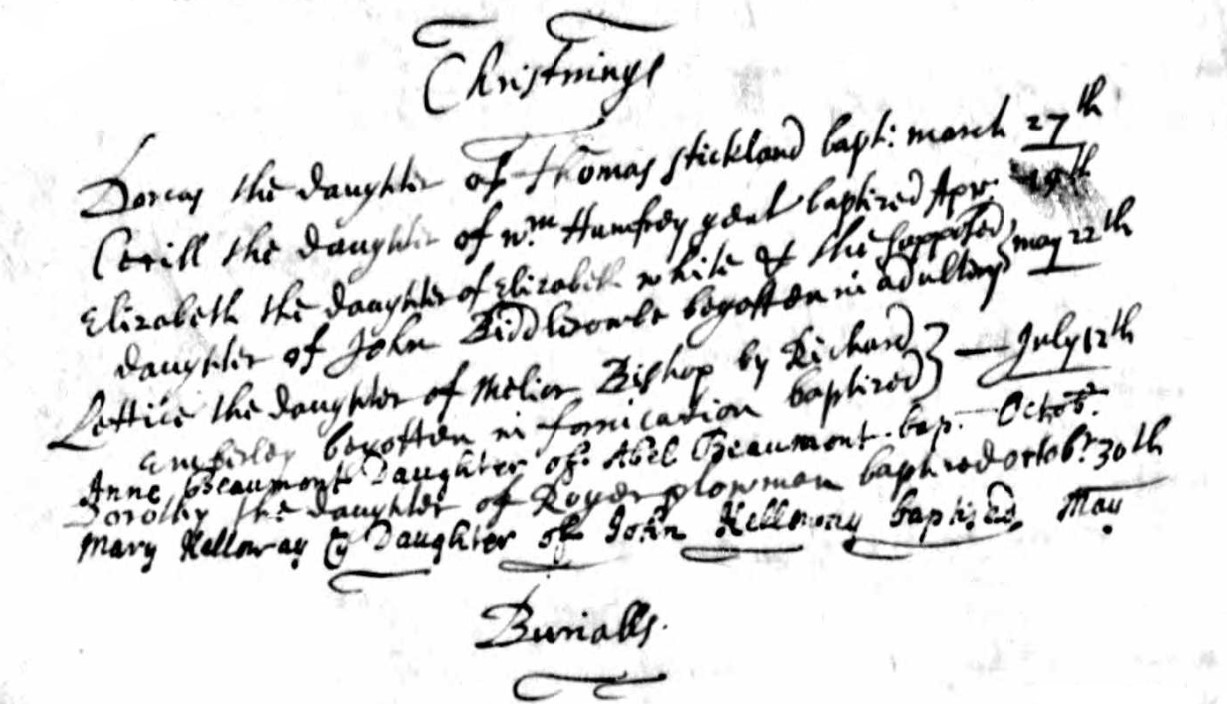 Christnings
Dorcas the daughter of Thomas Stickland bapt: march 27th
the daughter of Wm Humfrey gent baptized Apr: 19th
Elizabeth the daughter of Elizabeth white & the supposed
daughter of John Biddlcombe begotten in adultery may 22th
Lettice the daughter of Melior Bishop by Richard
Emberley begotten in fornication baptized July 12th
Anne Beaumont Daughter of Abel Beaumont. bap. Octob:
Dorothy the daughter of Roger plowman baptized octobr 30th
Mary Kelloway ye Daughter of John Kelloway baptized May
Burialls.